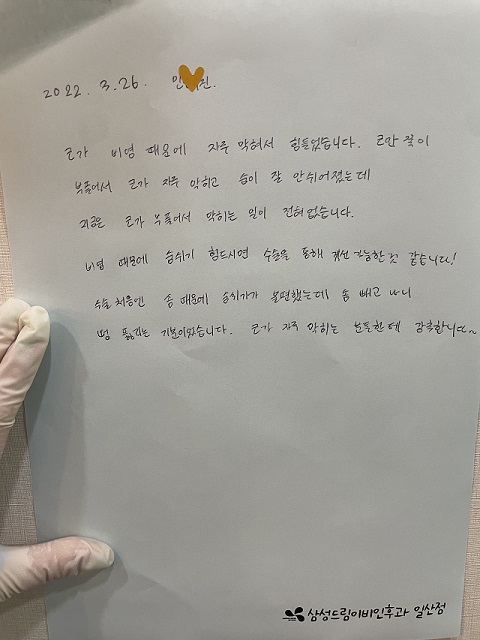 2022. 3. 26. 민 진.
코가 비염 때문에 자주 막혀서 힘들었습니다. 코안 쪽이
부풀어서 코가 자주 막히고 숨이 잘 안쉬어졌는데
지금은 코가 부풀어서 막히는 일이 전혀 없습니다.
비염 때문에 숨쉬기 힘드시면 수술을 통해 개선 가능한 것 같습니다!
수술 처음엔 솜 때문에 숨쉬기가 불편했는데 솜 빼고 나니
뻥 뚫리는 기분이었습니다. 코가 자주 막히는 분들한테 강추합니다~
삼성드림이비인후과 일산점